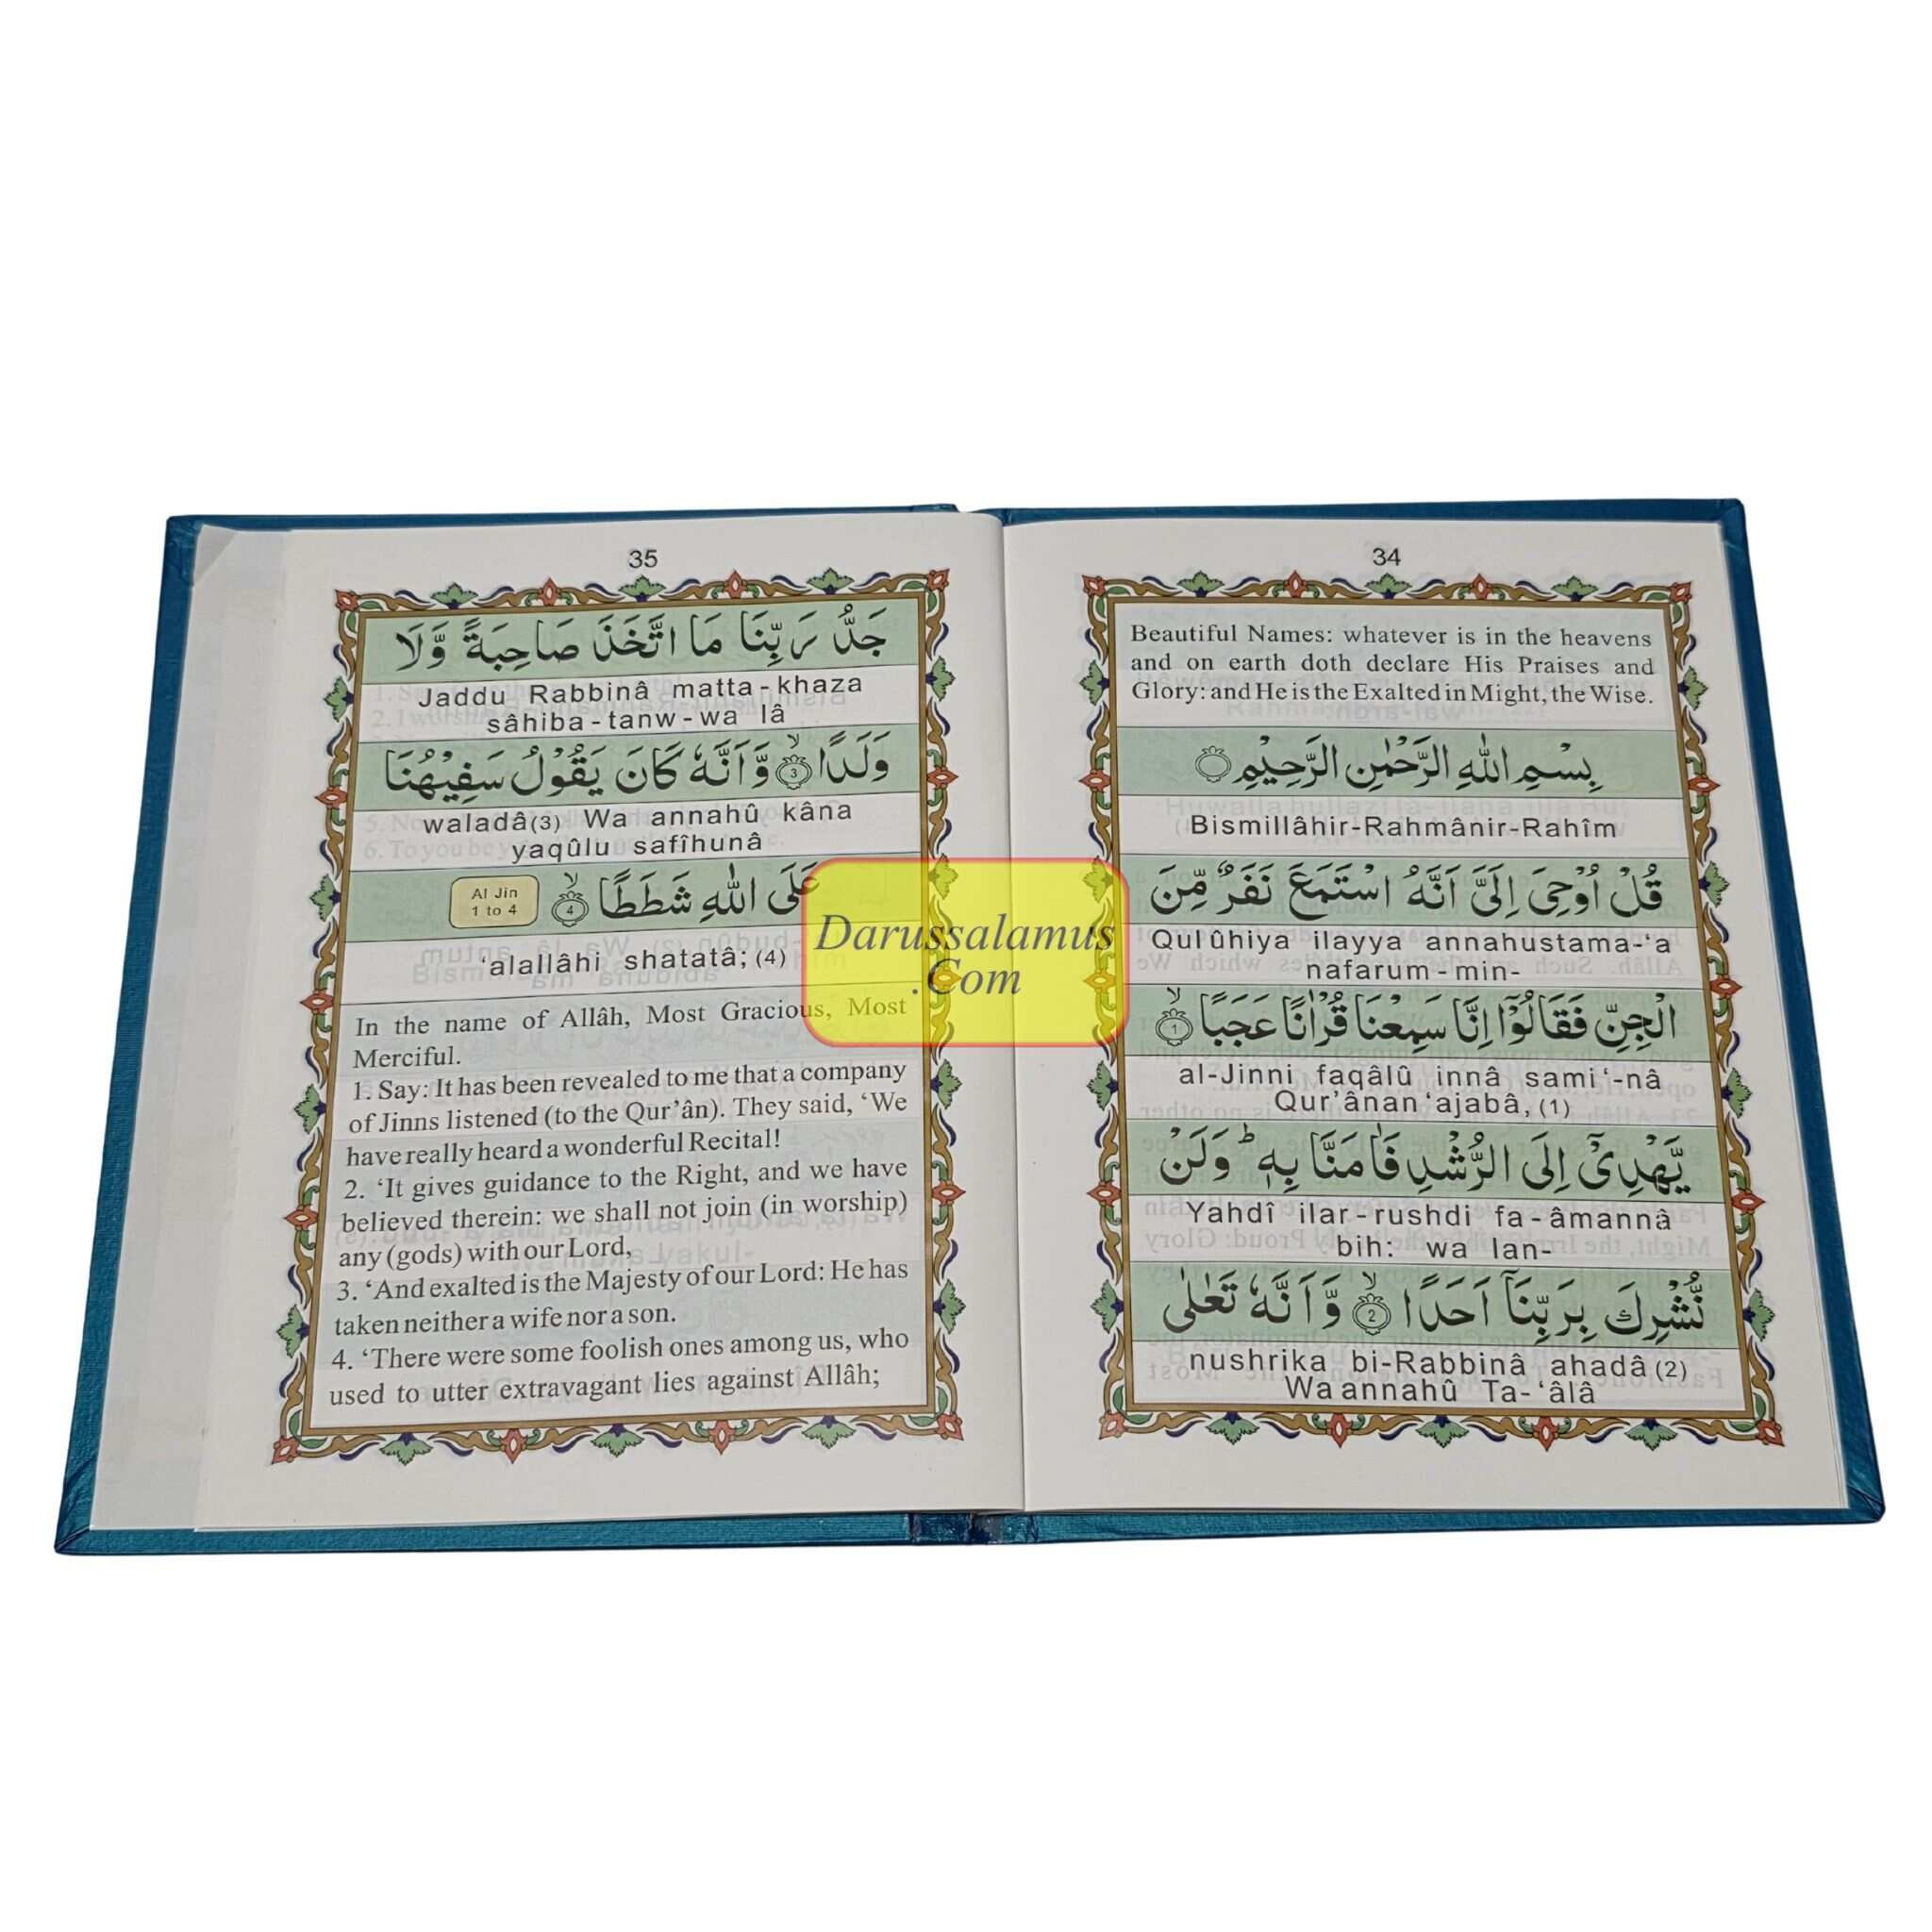 34
Beautiful Names: whatever is in the heavens
and on earth doth declare His Praises and
Glory: and He is the Exalted in Might, the Wise.
بِسْمِ اللّٰهِ الرَّحْمٰنِ الرَّحِيْمِ
Bismillâhir-Rahmânir-Rahîm
قُلْ اُوْحِيَ اِلَيَّ اَنَّهُ اسْتَمَعَ نَفَرٌ مِّنَ
Qul ûhiya ilayya annahustama-‘a
nafarum-min-
الْجِنِّ فَقَالُوْٓا اِنَّا سَمِعْنَا قُرْاٰنًا عَجَبًا ۙ 1
al-Jinni faqâlû innâ sami‘-nâ
Qur’ânan ‘ajabâ, (1)
يَّهْدِيْٓ اِلَى الرُّشْدِ فَاٰمَنَّا بِهٖ ؕ وَلَنْ
Yahdî ilar-rushdi fa-âmannâ
bih: wa lan-
نُّشْرِكَ بِرَبِّنَآ اَحَدًا ۙ 2 وَّاَنَّهٗ تَعٰلٰى
nushrika bi-Rabbinâ ahadâ (2)
Wa annahû Ta-‘âlâ
35
جَدُّ رَبِّنَا مَا اتَّخَذَ صَاحِبَةً وَّلَا
Jaddu Rabbinâ matta-khaza
sâhiba-tanw-wa lâ
وَلَدًا ۙ 3 وَّاَنَّهٗ كَانَ يَقُوْلُ سَفِيْهُنَا
waladâ(3) Wa annahû kâna
yaqûlu safîhunâ
عَلَى اللّٰهِ شَطَطًا ۙ 4 Al Jin
1 to 4
‘alallâhi shatatâ; (4)
In the name of Allâh, Most Gracious, Most
Merciful.
1. Say: It has been revealed to me that a company
of Jinns listened (to the Qur’ân). They said, ‘We
have really heard a wonderful Recital!
2. ‘It gives guidance to the Right, and we have
believed therein: we shall not join (in worship)
any (gods) with our Lord,
3. ‘And exalted is the Majesty of our Lord: He has
taken neither a wife nor a son.
4. ‘There were some foolish ones among us, who
used to utter extravagant lies against Allâh;
Darussalamus
.Com